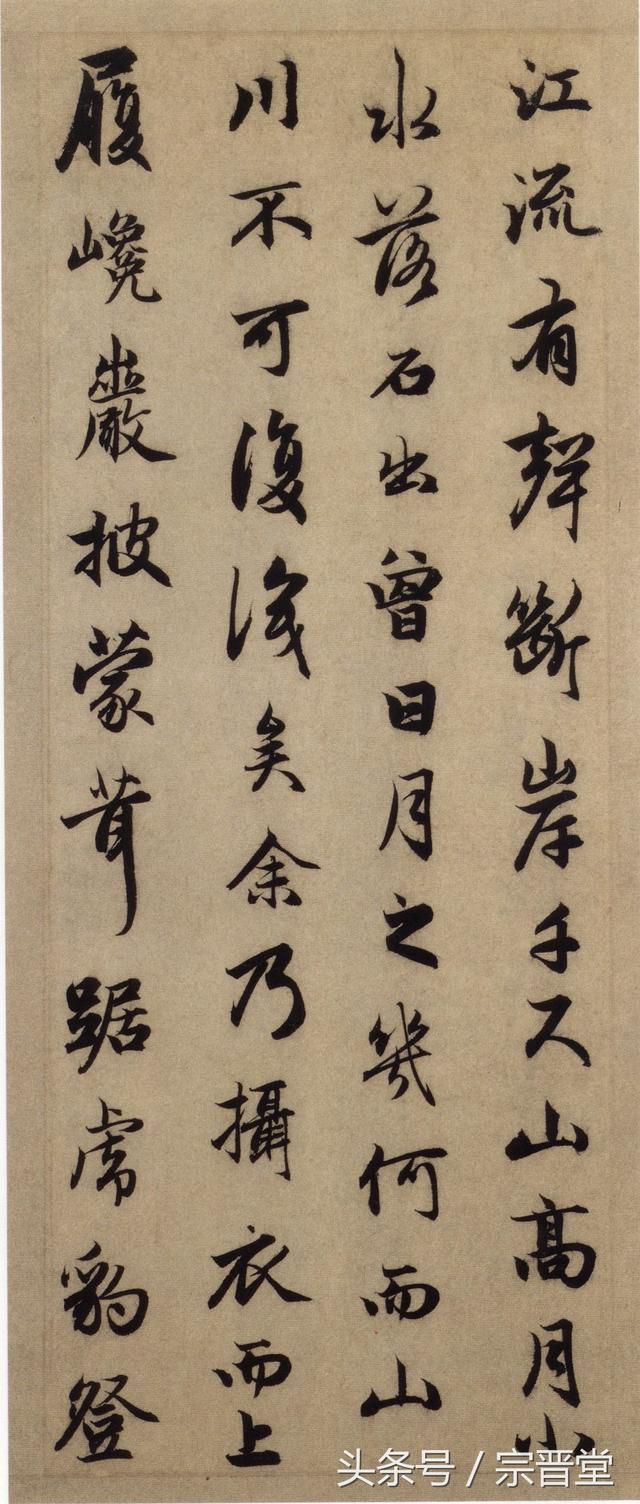 江流有聲斷岸千尺山高月小
水落石出曾日月之幾何而山
川不可復識矣余乃攝衣而上
履巉巖披蒙茸踞虎豹登
头条号 / 宗晋堂